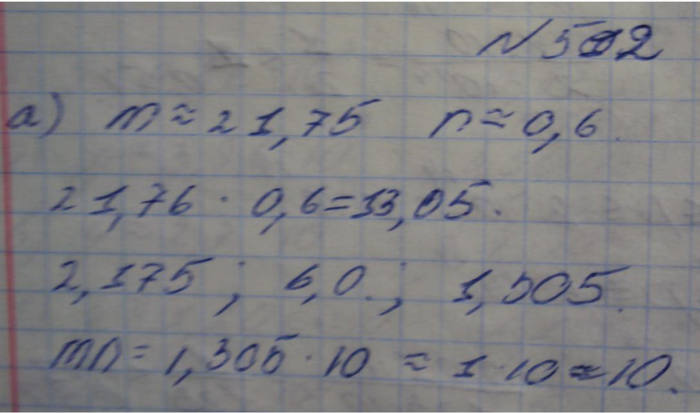 № 502
а) m ≈ 21,75 n ≈ 0,6.
21,76 · 0,6 = 13,05.
2,175 ; 6,0. ; 1,305.
mn = 1,305 · 10 ≈ 1 · 10 = 10.